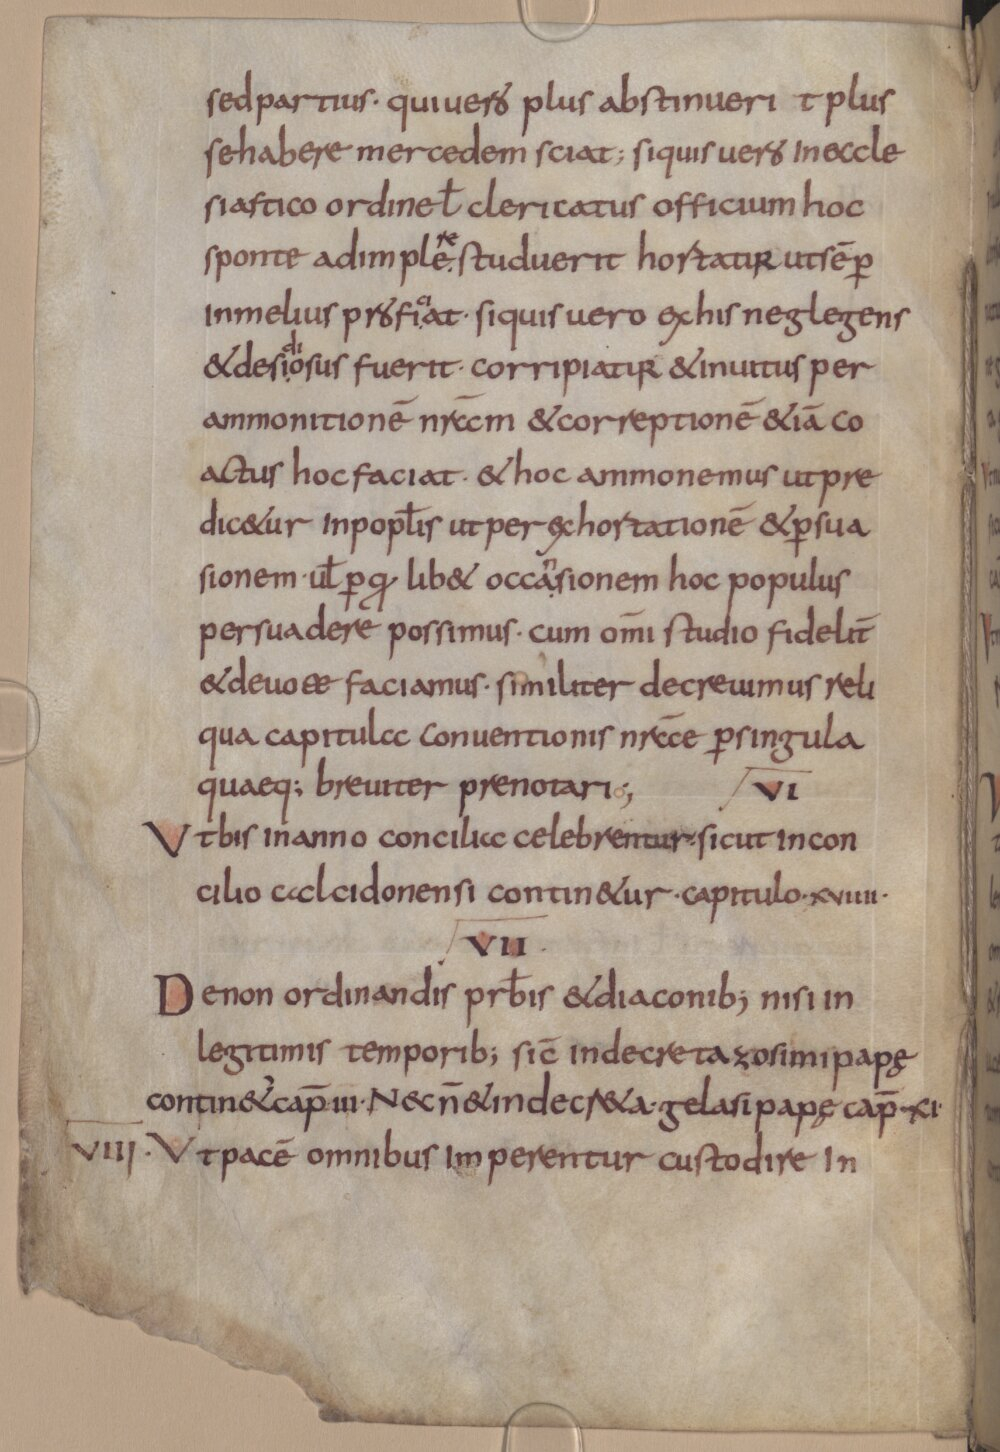 sed partius · qui uero plus abstinueri t plus
se habere mercedem sciat; siquis uero In eccle
siastico ordine ul̄ clericatus officium hoc
sponte adimplere studuerit hortatur ut sēp
in melius proficiat · siquis uero ex his neglegens
& desidiosus fuerit · corripiatur & inuitus per
ammonitionē nr̄am & correptionē & iā co
actus hoc faciat · & hoc ammonemus ut pre
dic&ur In pop̄lis ut per exhortationē & ꝑsua
sionem · ul̄ ꝑ q lib& occansionem hoc populus
persuadere possimus · cum om̄i studio fidelit̄
& deuote faciamus · similiter decreuimus reli
qua capitula conuentionis nr̄ae ꝑ singula
quaeq; breuiter prenotari;
VI
Vt bis in anno concilia celebrentur · sicut in con
cilio calcidonensi contin&ur · capitulo · xviiii ·
VII ·
De non ordinandis prb̄is & diaconib; nisi in
legitimis temporib; sic̄ in decreta zosimi papę
contin&ur cap̄ · iii · Necn̄ & in decr&a · gelasi papę cap̄ · xi ·
VIII · Vt pacē omnibus Imperentur custodire In